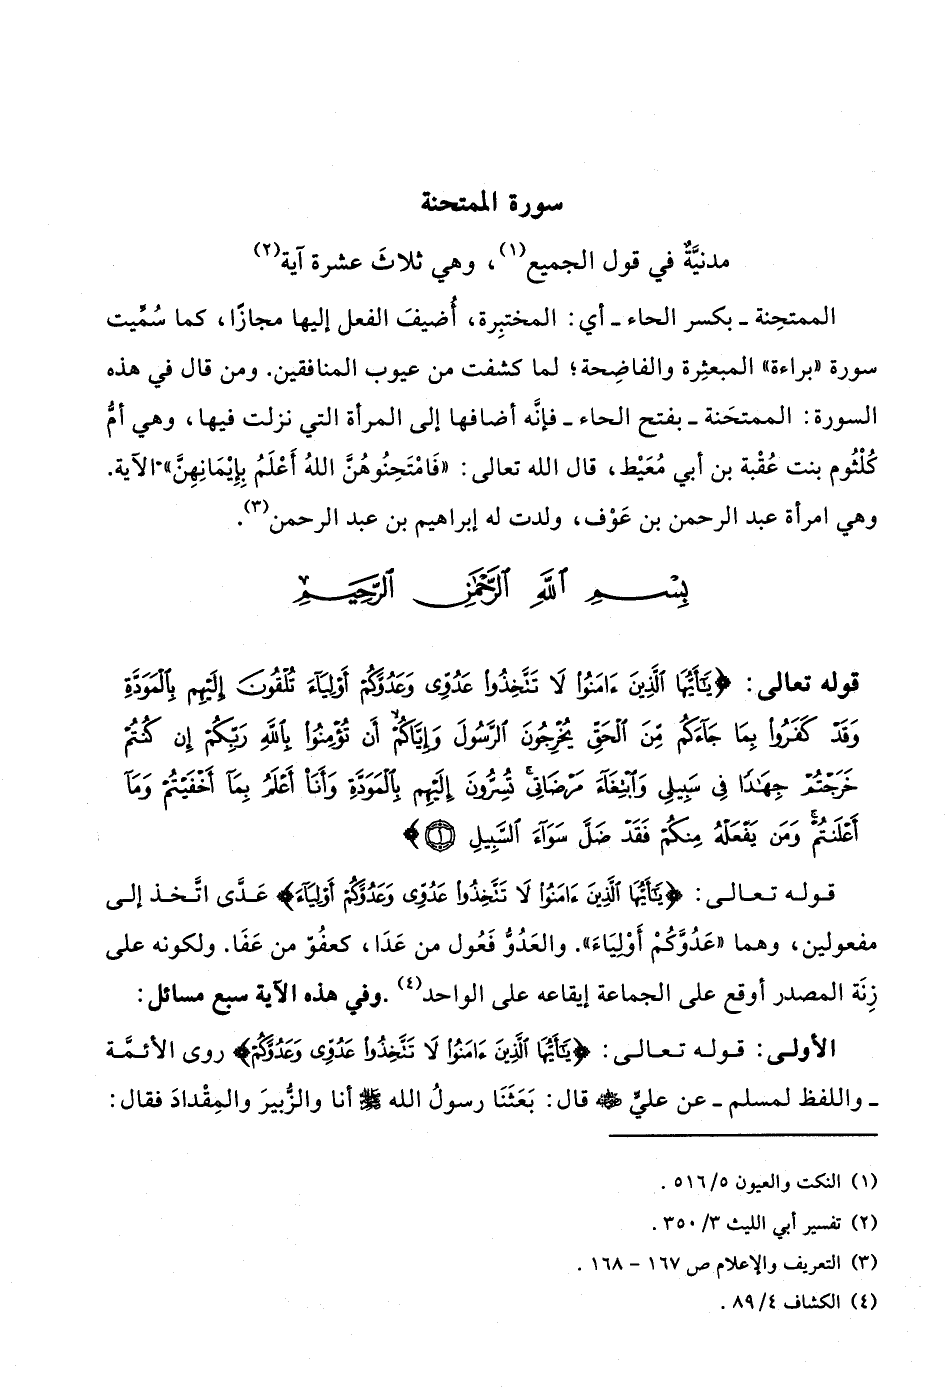 سورة الممتحنة
مدنيَّةٌ في قول الجميع(١)، وهي ثلاثَ عشرة آية(٢)
الممتحِنة ـ بكسر الحاء ـ أي: المختبِرة، أُضيفَ الفعل إليها مجازًا، كما سُمِّيت
سورة «براءة» المبعثِرة والفاضِحة؛ لما كشفت من عيوب المنافقين. ومن قال في هذه
السورة: الممتحَنة ـ بفتح الحاء ـ فإنَّه أضافها إلى المرأة التي نزلت فيها، وهي أمُّ
كُلْثُوم بنت عُقْبة بن أبي مُعَيْط، قال الله تعالى: «فَامْتَحِنُوهُنَّ اللهُ أَعْلَمُ بِإِيْمَانِهِنَّ» الآية.
وهي امرأة عبد الرحمن بن عَوْف، ولدت له إبراهيم بن عبد الرحمن(٣).
بِسْمِ ٱللَّهِ ٱلرَّحْمَٰنِ ٱلرَّحِيمِ
قوله تعالى: ﴿يَٰٓأَيُّهَا ٱلَّذِينَ ءَامَنُوا۟ لَا تَتَّخِذُوا۟ عَدُوِّى وَعَدُوَّكُمْ أَوْلِيَآءَ تُلْقُونَ إِلَيْهِم بِٱلْمَوَدَّةِ
وَقَدْ كَفَرُوا۟ بِمَا جَآءَكُم مِّنَ ٱلْحَقِّ يُخْرِجُونَ ٱلرَّسُولَ وَإِيَّاكُمْ ۙ أَن تُؤْمِنُوا۟ بِٱللَّهِ رَبِّكُمْ إِن كُنتُمْ
خَرَجْتُمْ جِهَٰدًا فِى سَبِيلِى وَٱبْتِغَآءَ مَرْضَاتِى ۚ تُسِرُّونَ إِلَيْهِم بِٱلْمَوَدَّةِ وَأَنَا۠ أَعْلَمُ بِمَآ أَخْفَيْتُمْ وَمَآ
أَعْلَنتُمْ ۚ وَمَن يَفْعَلْهُ مِنكُمْ فَقَدْ ضَلَّ سَوَآءَ ٱلسَّبِيلِ ۝١﴾
قوله تعالى: ﴿يَٰٓأَيُّهَا ٱلَّذِينَ ءَامَنُوا۟ لَا تَتَّخِذُوا۟ عَدُوِّى وَعَدُوَّكُمْ أَوْلِيَآءَ﴾ عَدَّى اتَّخذ إلى
مفعولين، وهما «عَدُوَّكُمْ أَوْلِيَاءَ». والعَدُوُّ فَعُول من عَدَا، كعفُوّ من عَفَا. ولكونه على
زِنَة المصدر أوقع على الجماعة إيقاعه على الواحد(٤). وفي هذه الآية سبع مسائل:
الأولى: قوله تعالى: ﴿يَٰٓأَيُّهَا ٱلَّذِينَ ءَامَنُوا۟ لَا تَتَّخِذُوا۟ عَدُوِّى وَعَدُوَّكُمْ﴾ روى الأئمَّة
ـ واللفظ لمسلم ـ عن عليٍّ ﵁ قال: بَعَثَنَا رسولُ الله ﷺ أنا والزُّبيرَ والمِقْدادَ فقال:
(١) النكت والعيون ٥١٦/٥ .
(٢) تفسير أبي الليث ٣٥٠/٣ .
(٣) التعريف والإعلام ص ١٦٧ - ١٦٨ .
(٤) الكشاف ٨٩/٤ .